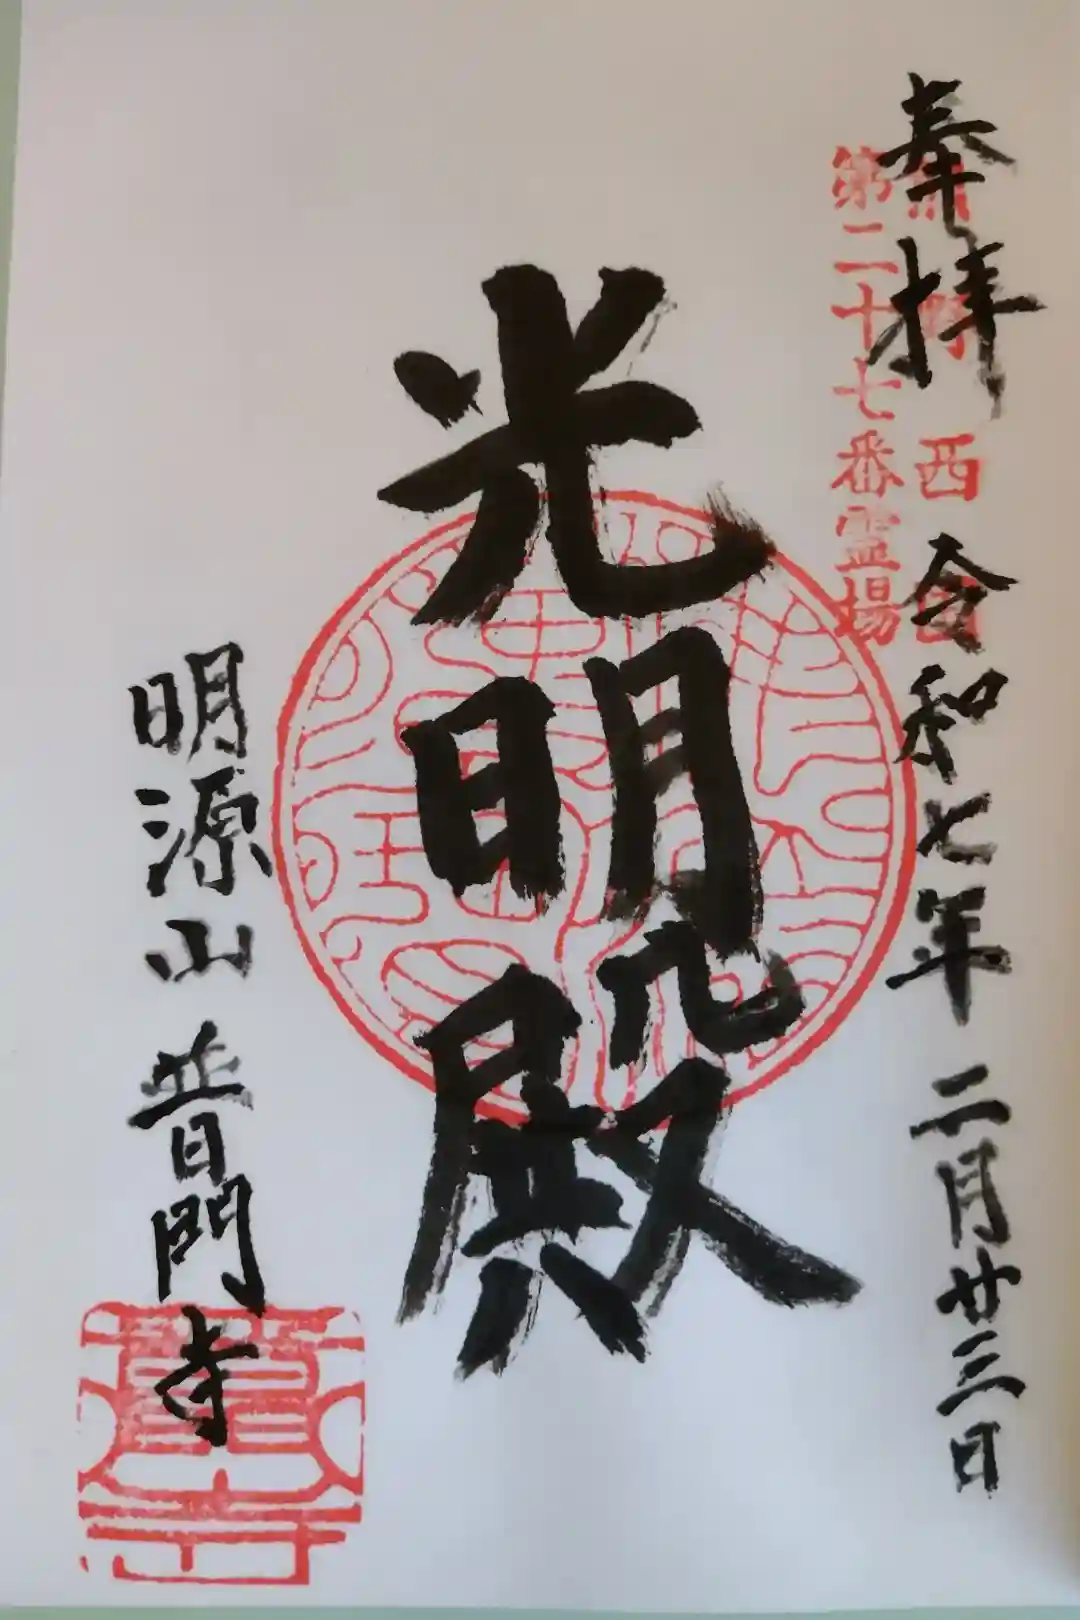 奉拝
西国
第二十七番霊場
令和七年二月廿三日
光明殿
明源山普門寺